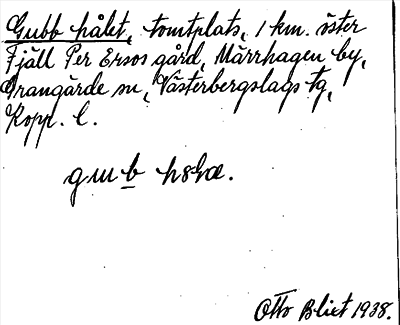 Gubb hålet, tomtplats, 1 km. öster
Fjäll Per Ersos gård, Mårrhagen by,
Grangärde sn, Västerbergslags tg,
Kopp. l.
gub
Otto Blixt 1938.